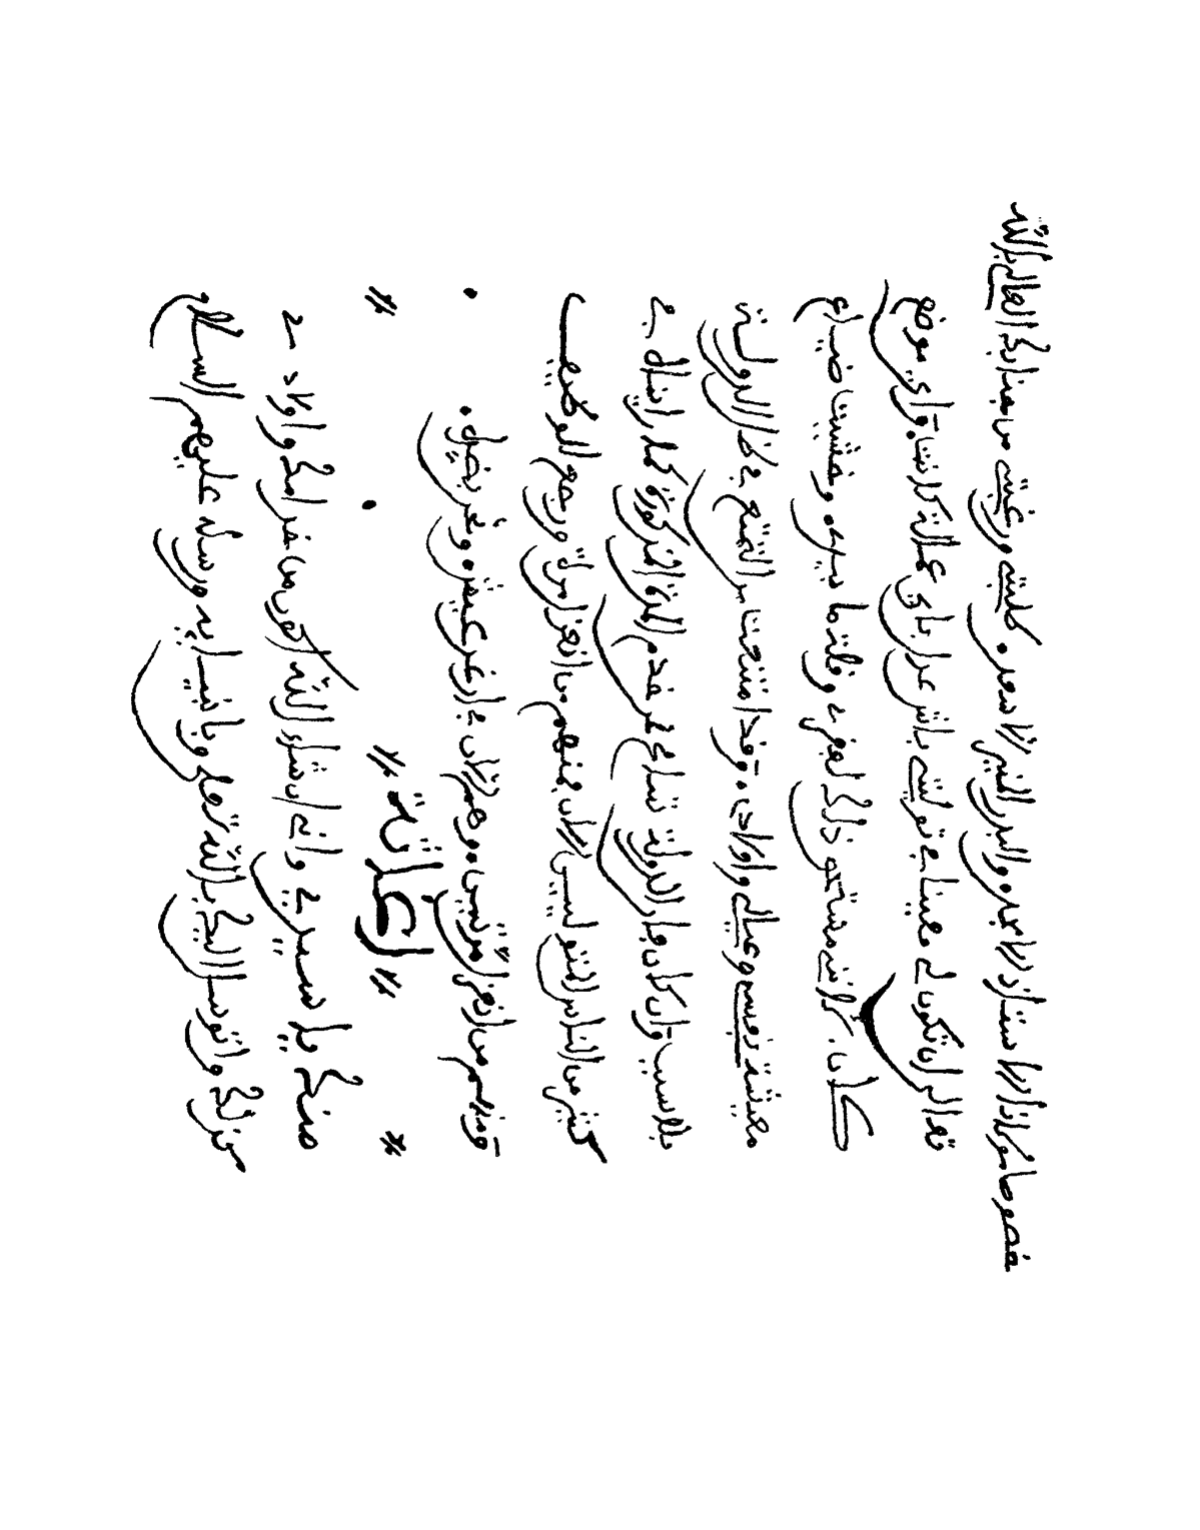 خصوصا مولانا الاستاذ الامجد والبدر المنير الاسعد وطلبت ورغبت من جنابك العالي بالله
تعالى ان تكون لي معينا في توليتي باش عدل باي عمالة كانت واي موضع
كان لانني مشتحق ذلك لفقري وقلة ما بيدي وخشيت ضياع
معيشة نفسي وعيالي واولادي وقد امتنعت من التمتع الدولة
بلا سبب وان كان الدولة المدة المذكورة كما راينا في
كثير من الناس المتوليين كان بعضهم من انعزل مرة ورجع للوظيف
ومنهم من انعزل مرتين وهم الان في ارغد عيشة
اعانة
منك يا سيدي واني ان شاء الله اكون من خدامك واولادي
منزلك واتوسل اليك بالله تعالى وبانبيائه ورسله عليهم السلام